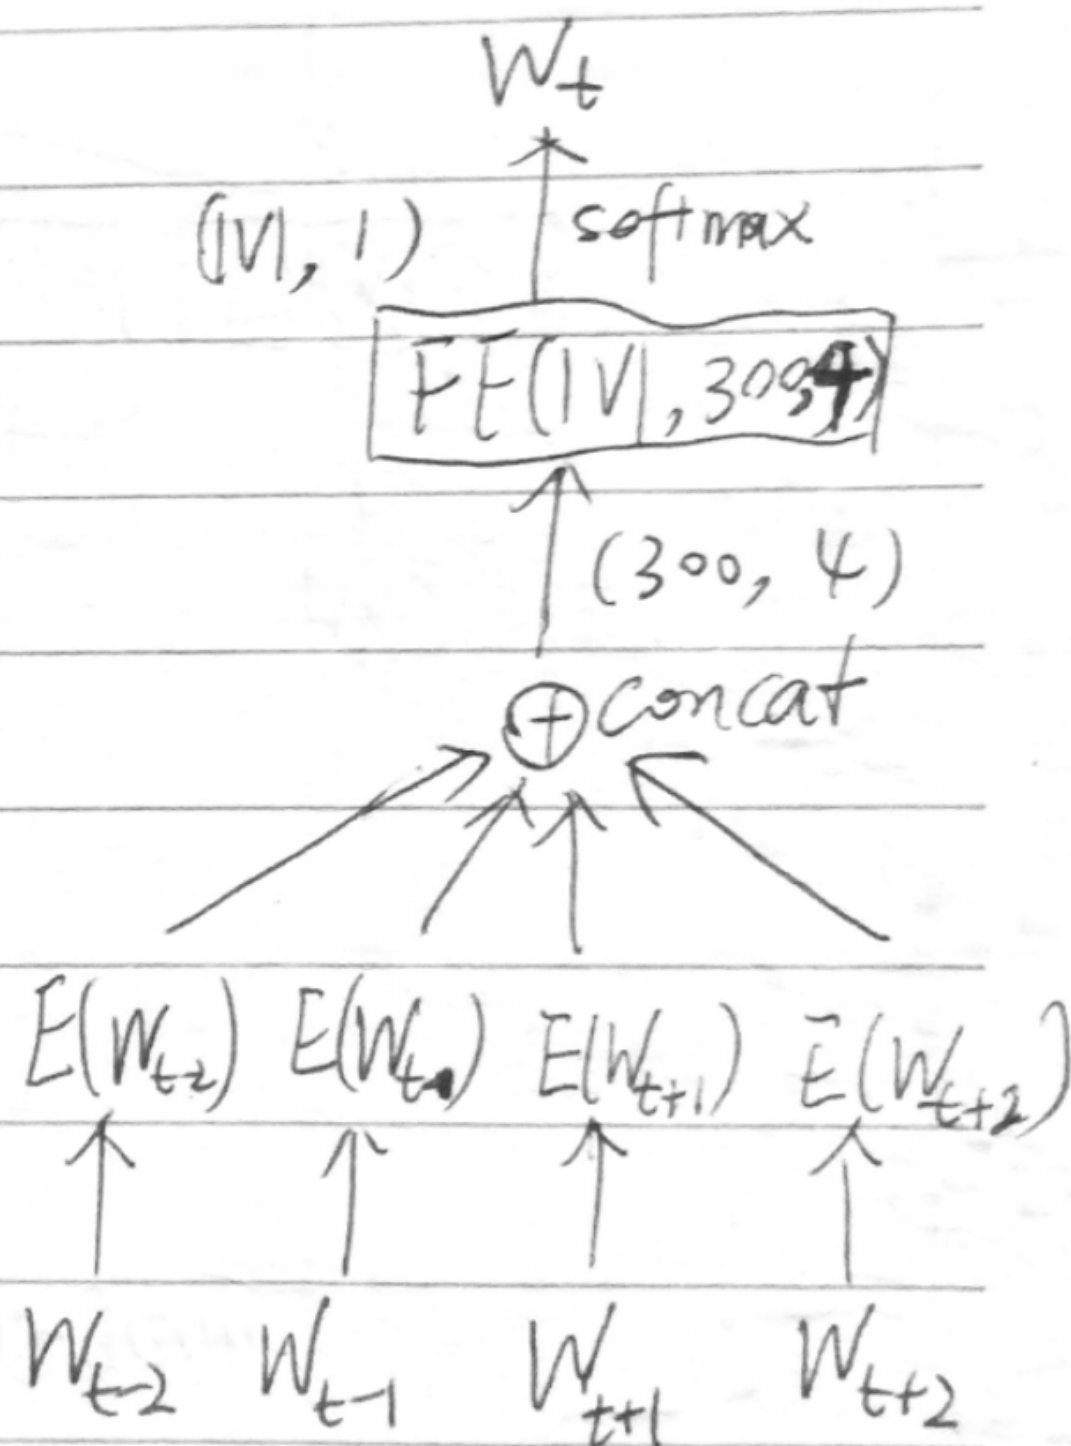 W_t
(|V|, 1) softmax
FF(|V|, 300,4)
(300, 4)
⊕ concat
E(W_t-2) E(W_t-1) E(W_t+1) E(W_t+2)
W_t-2 W_t-1 W_t+1 W_t+2